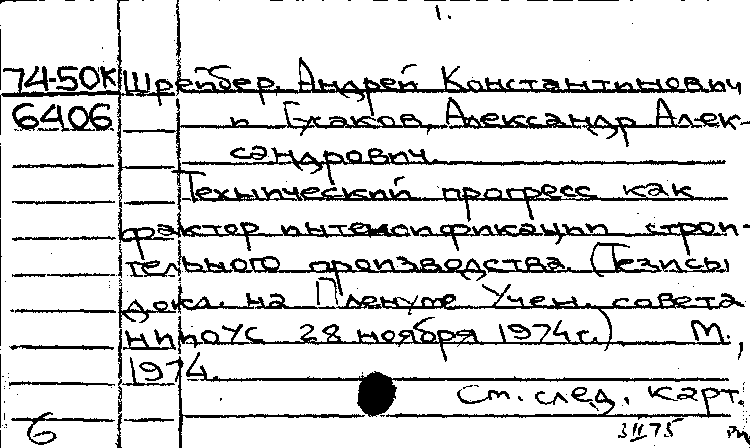 1.
74-50к Шрейбер, Андрей Константинович
6406 и Гусаков, Александр Алек-
сандрович.
Технический прогресс как
фактор интенсификации строи-
тельного производства. (Тезисы
докл. на Пленуме Учен. совета
НИПОУС 28 ноября 1974г.) М.,
1974.
См. след. карт.
6 3 II 75